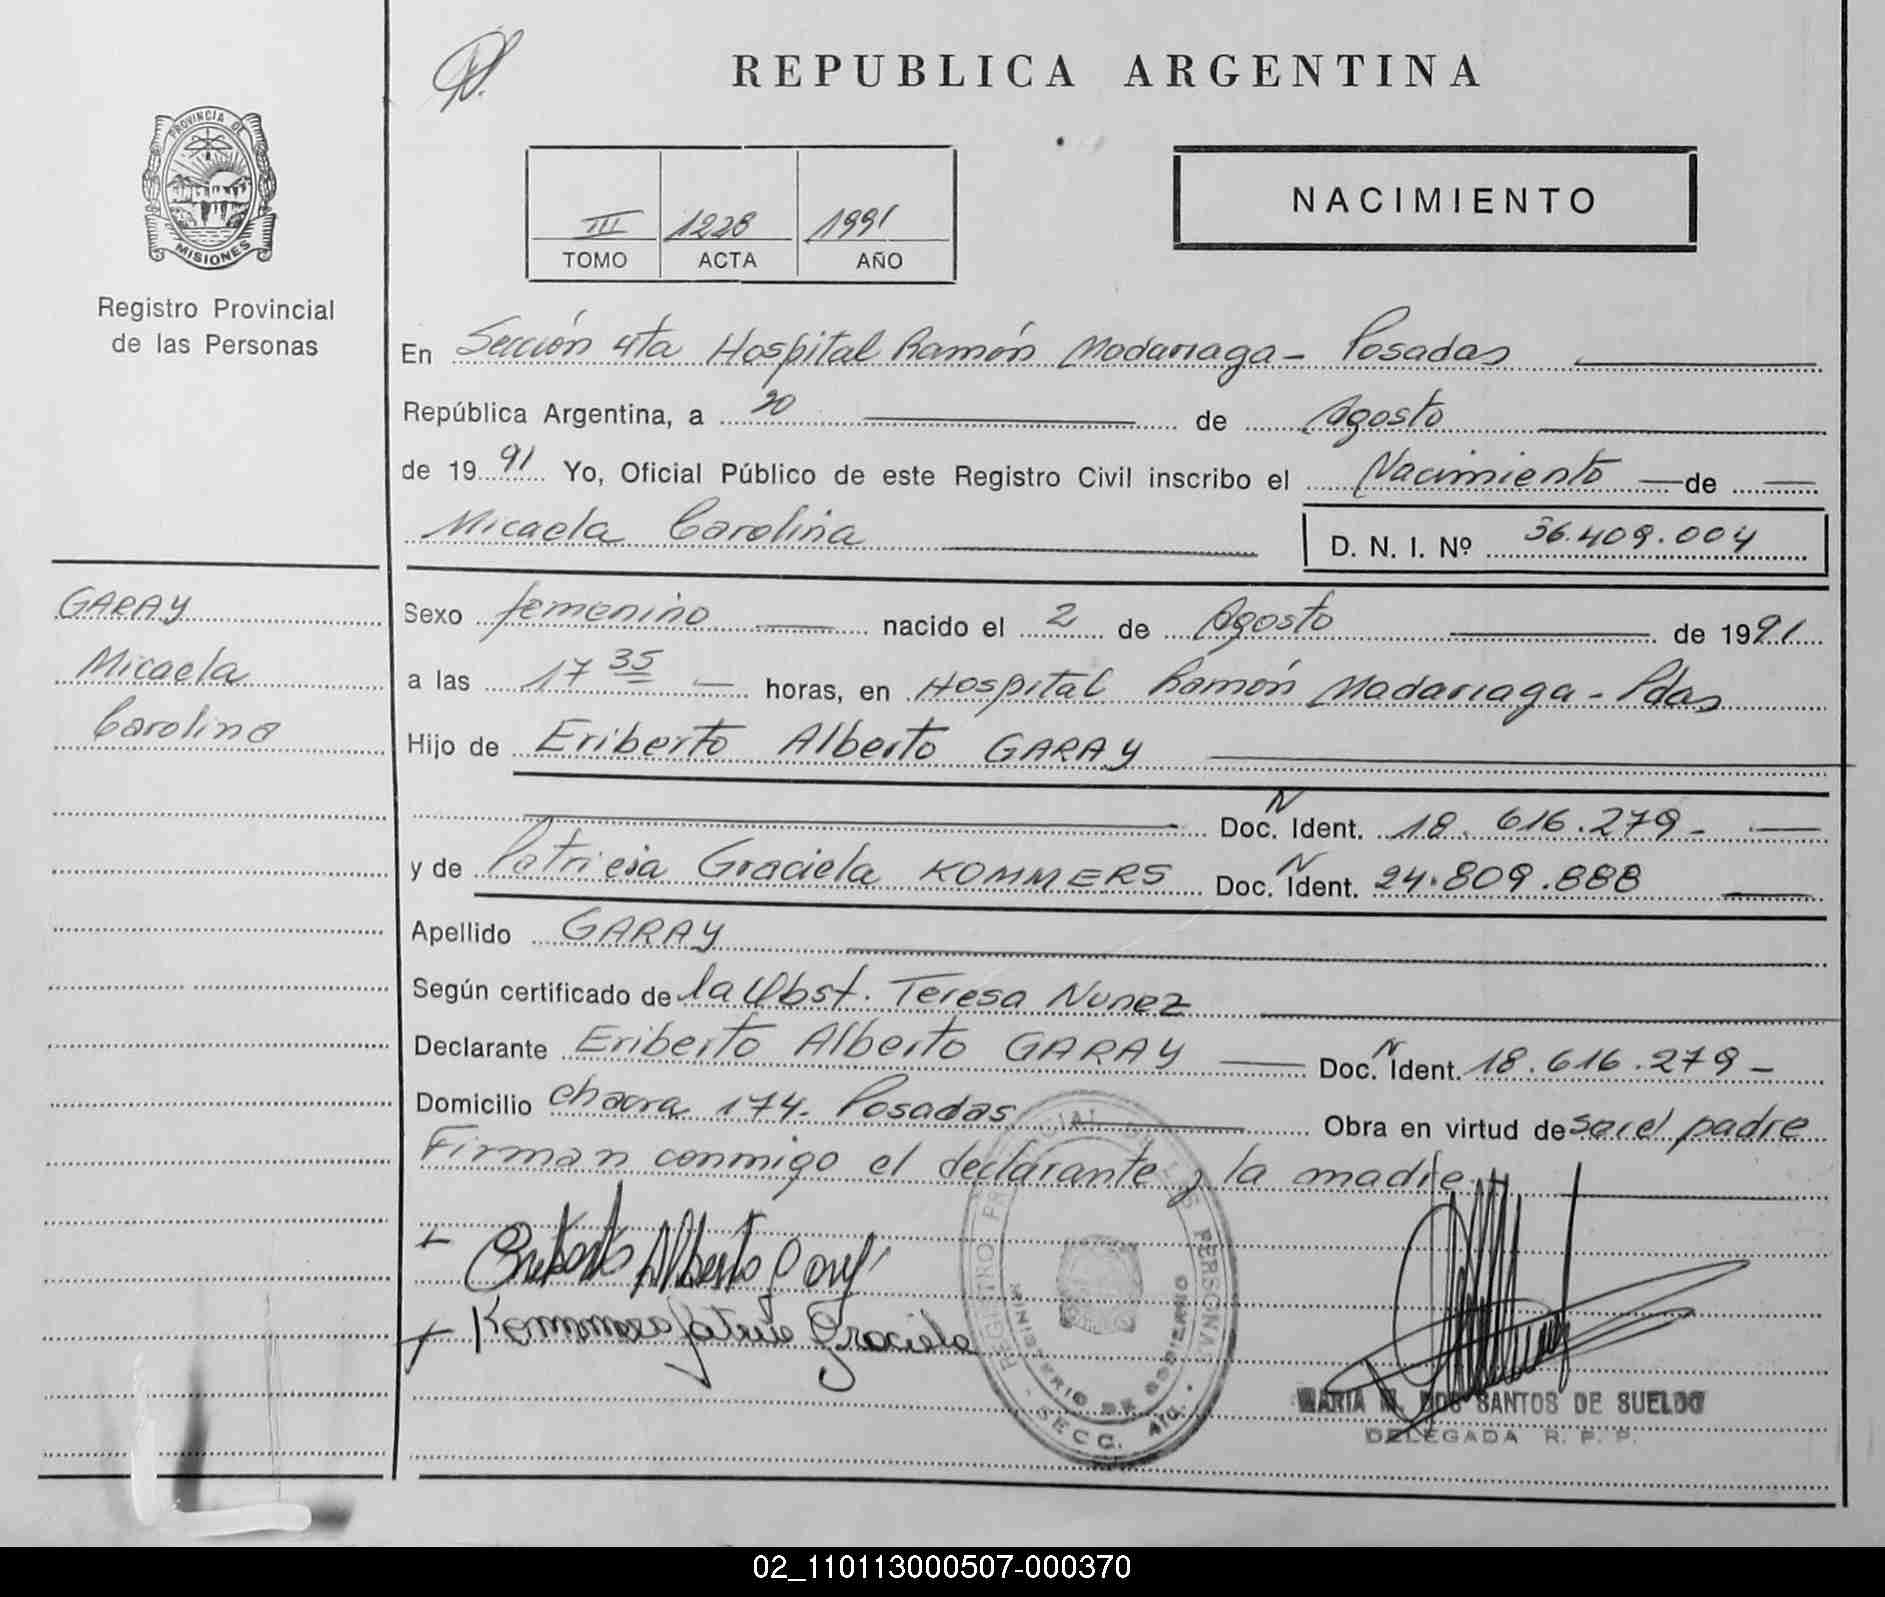 REPUBLICA ARGENTINA
PROVINCIA DE
MISIONES
Registro Provincial
de las Personas
III 1228 1991
TOMO ACTA AÑO
NACIMIENTO
En Sección 4ta Hospital Ramón Madariaga - Posadas
República Argentina, a 20 de Agosto
de 1991 Yo, Oficial Público de este Registro Civil inscribo el Nacimiento de
Micaela Carolina
D. N. I. Nº 36.409.004
GARAY
Micaela
Carolina
Sexo femenino nacido el 2 de Agosto de 1991
a las 17 35 horas, en Hospital Ramón Madariaga - Pdas
Hijo de Eriberto Alberto GARAY
Doc. N Ident. 18.616.279-
y de Patricia Graciela KOMMERS Doc. N Ident. 24.809.888
Apellido GARAY
Según certificado de la Obst. Teresa Nunez
Declarante Eriberto Alberto GARAY Doc. N Ident. 18.616.279-
Domicilio chacra 174. Posadas Obra en virtud de ser el padre
Firman conmigo el declarante y la madre
Eriberto Alberto Garay
Kommers Patricia Graciela
REGISTRO PROVINCIAL DE LAS PERSONAS
MINISTERIO DE GOBIERNO
SECC. 4ta.
MARIA M. DOS SANTOS DE SUELDO
DELEGADA R. P. P.
02_110113000507-000370